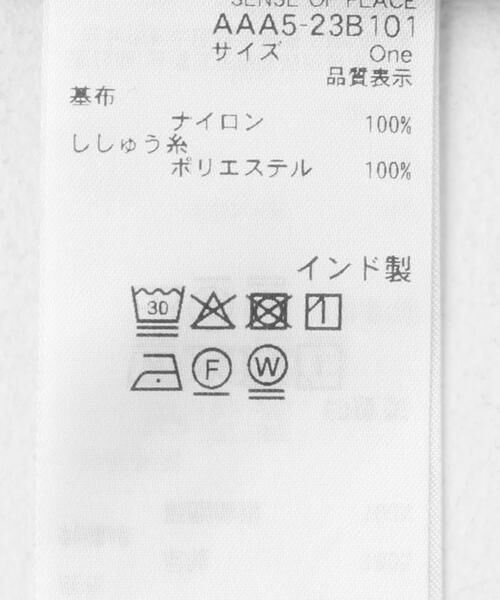 SENSE OF PLACE
AAA5-23B101
サイズ One
品質表示
基布
ナイロン 100%
ししゅう糸
ポリエステル 100%
インド製
30
F W